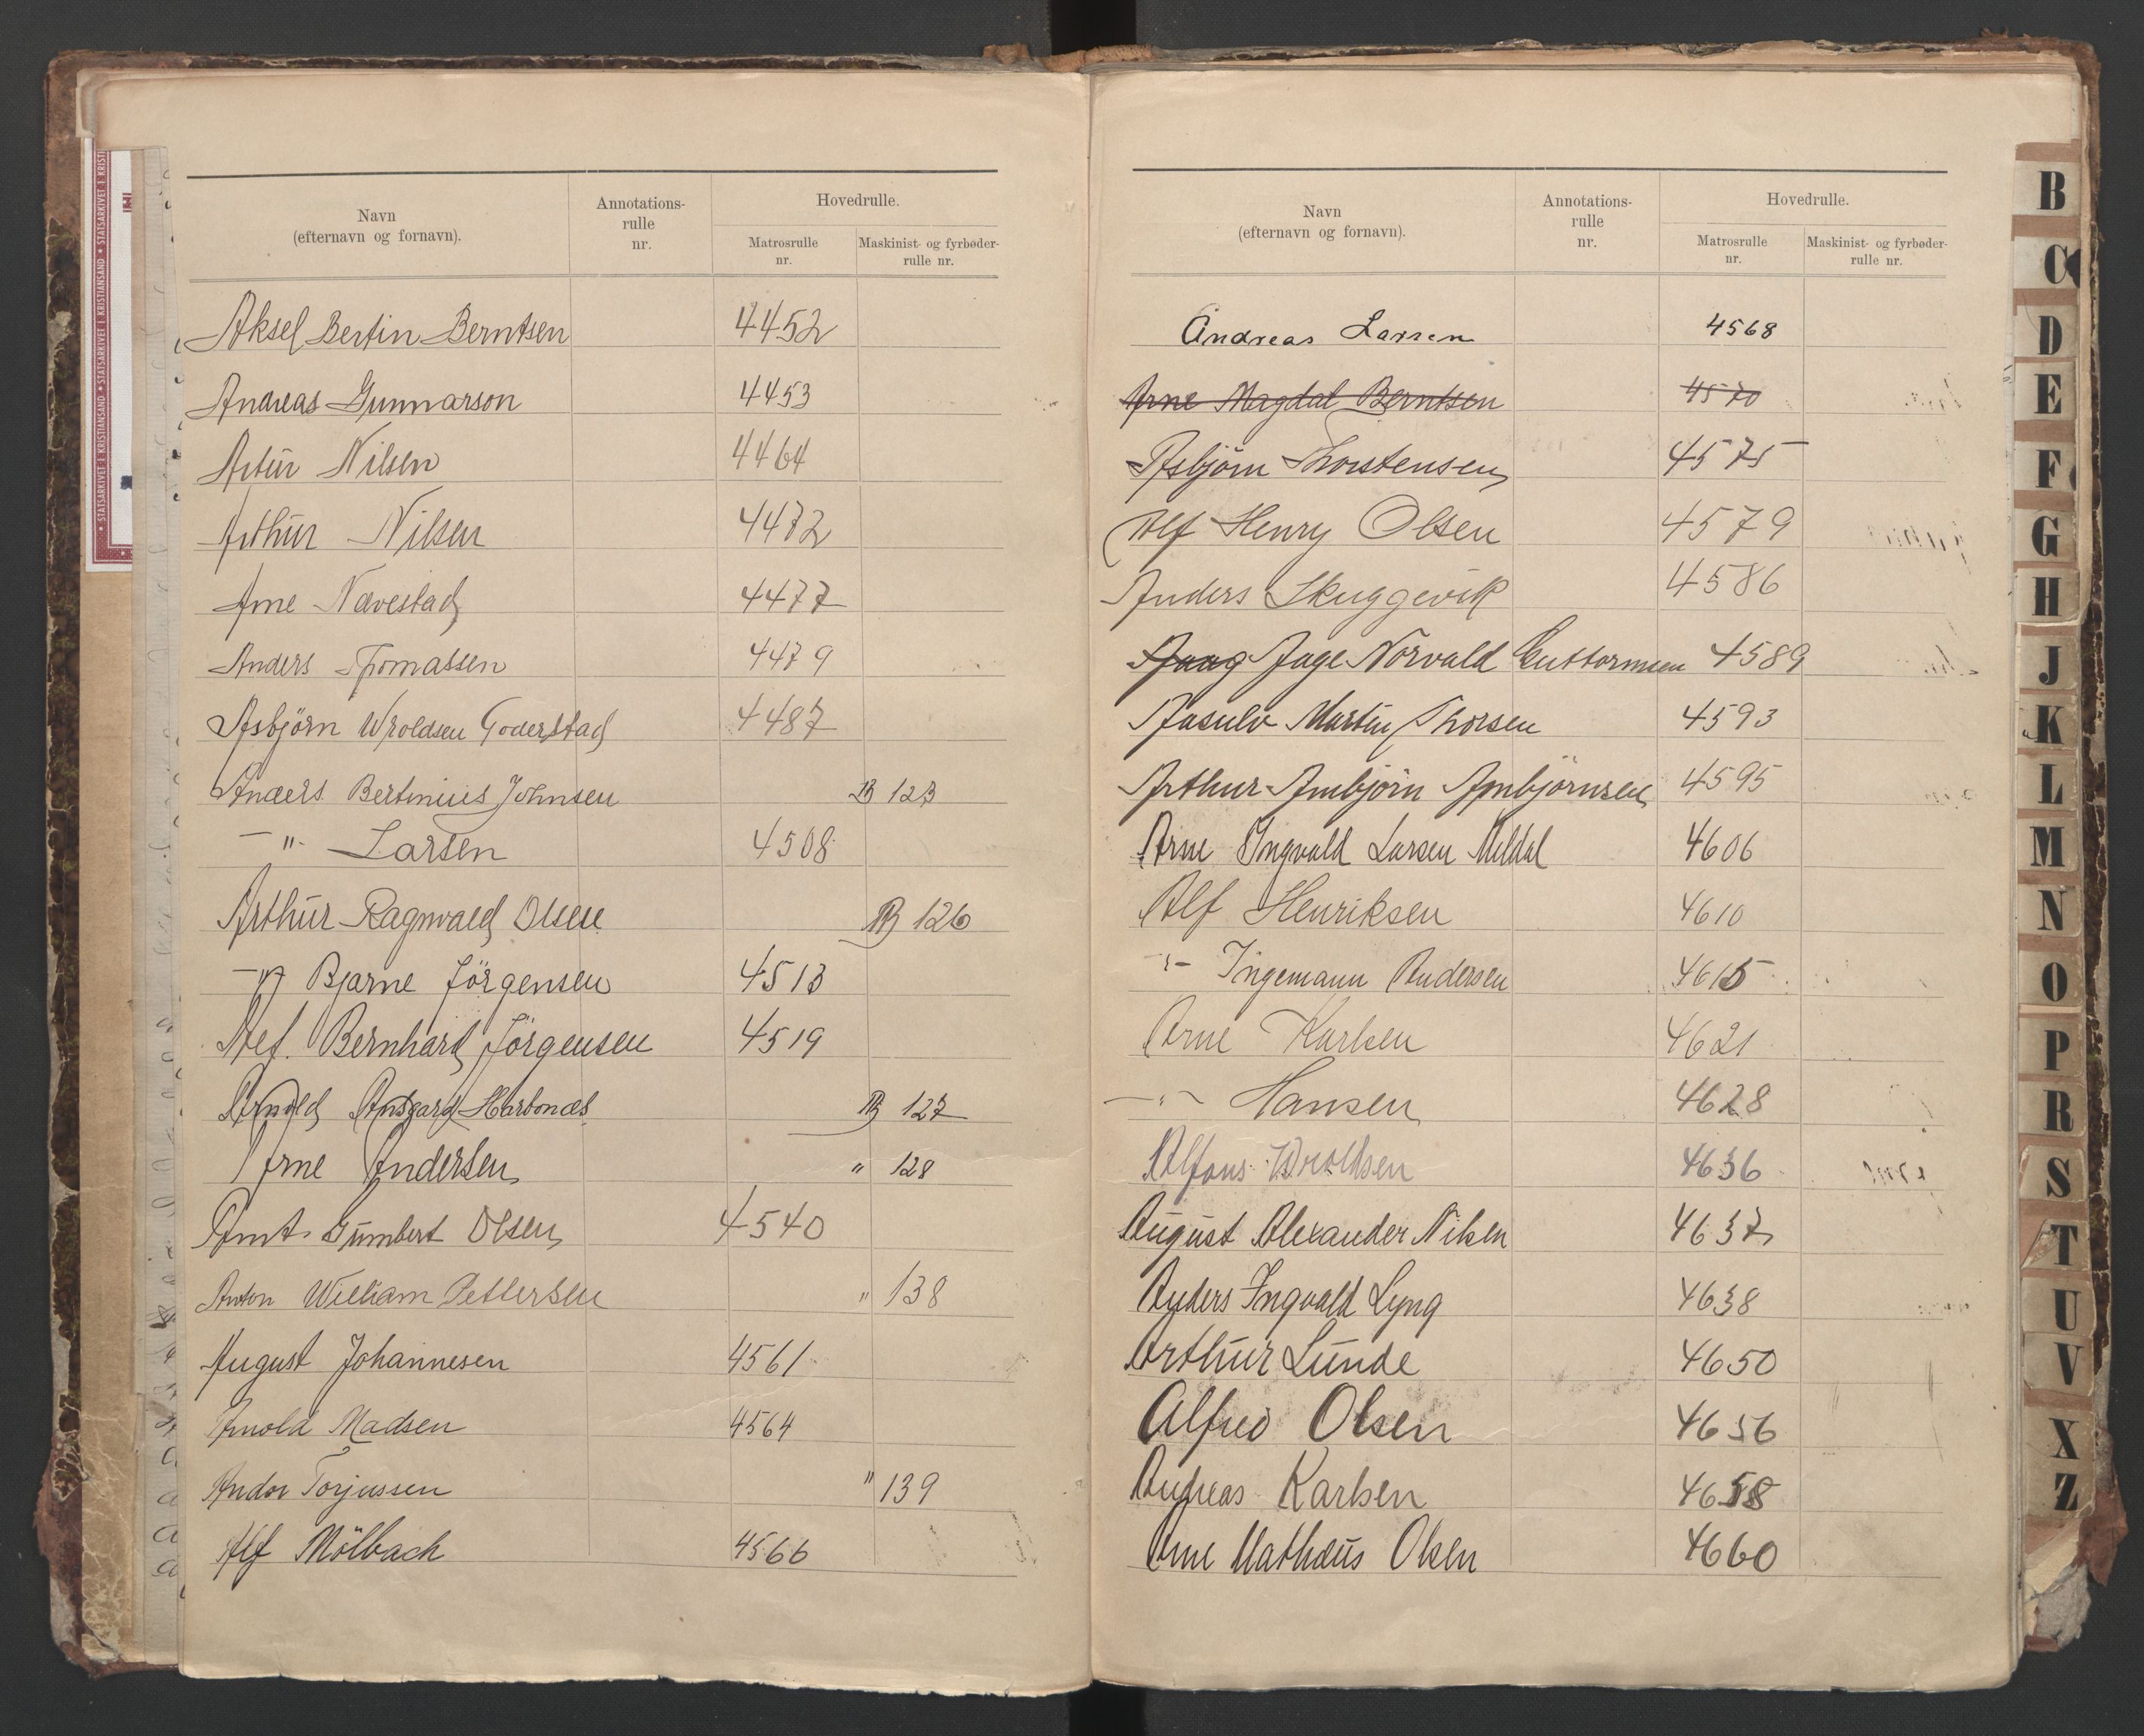 Navn
(efternavn og fornavn).
Annotations-
rulle
nr.
Hovedrulle.
Matrosrulle
nr.
Maskinist- og fyrbøder-
rulle nr.
Aksel Bertin Berntsen 4452
Andreas Gunnarson 4453
Artur Nilsen 4464
Arthur Nilsen 4472
Arne Nævestad 4477
Anders Thomassen 4479
Asbjörn Wroldsen Goderstad 4487
Anders Bertinius Johnsen B 123
—"- Larsen 4508
Arthur Ragnvald Olsen B 126
—"— Bjarne Jörgensen 4513
Alf. Bernhard Jörgensen 4519
Arnold Ansgard Harbonæs B 127
Arne Andersen " 128
Arnt Gumbert Olsen 4540
Anton William Pettersen " 138
August Johannesen 4561
Arnold Madsen 4564
Andor Torjussen " 139
Alf Mölbach 4566
Navn
(efternavn og fornavn).
Annotations-
rulle
nr.
Hovedrulle.
Matrosrulle
nr.
Maskinist- og fyrbøder-
rulle nr.
Andreas Larsen 4568
Arne Magdal Berntsen 4570
Asbjörn Thorstensen 4575
Alf Henry Olsen 4579
Anders Skuggevik 4586
Aage Norvald Guttormsen 4589
Aasulv Martin Thorsen 4593
Arthur Ambjörn Ambjörnsen 4595
Arne Ingvald Larsen Meldal 4606
Alf Henriksen 4610
-"- Ingemann Andersen 4615
Arne Karlsen 4621
—"— Hansen 4628
Alfons Wroldsen 4636
August Alexander Nilsen 4637
Anders Ingvald Lyng 4638
Arthur Lunde 4650
Alfred Olsen 4656
Andreas Karlsen 4658
Arne Mathæus Olsen 4660
B
C
D
E
F
G
H
J
K
L
M
N
O
P
R
S
T
U
V
X
Z
STATSARKIVET I KRISTIANSAND • STATSARKIVET I KRISTIANSAND